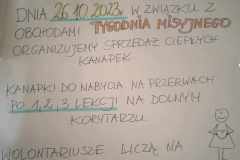 DNIA 26.10.2023 W ZWIĄZKU Z
OBCHODAMI TYGODNIA MISYJNEGO
ORGANIZUJEMY SPRZEDAŻ CIEPŁYCH
KANAPEK
KANAPKI DO NABYCIA NA PRZERWACH
PO 1, 2, 3 LEKCJI NA DOLNYM
KORYTARZU
WOLONTARIUSZE LICZĄ NA